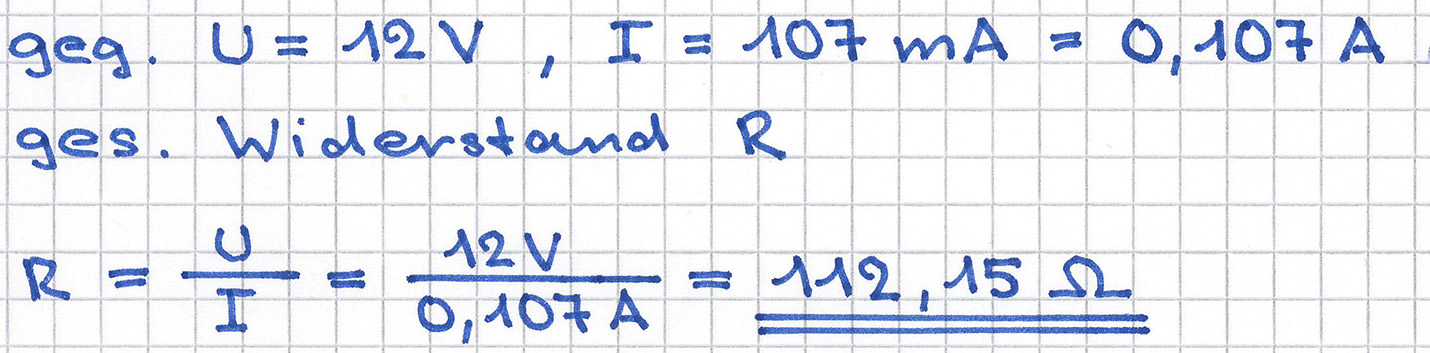 geg. U = 12 V , I = 107 mA = 0,107 A
ges. Widerstand R
R = U / I = 12 V / 0,107 A = 112,15 Ω